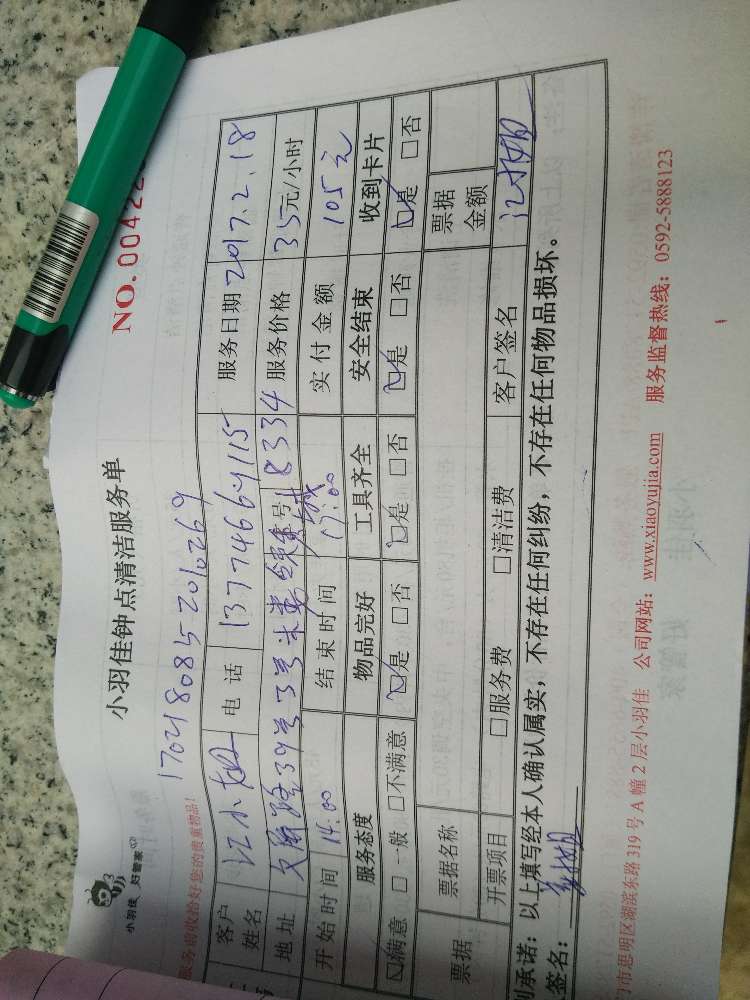 小羽佳 好管家
小羽佳钟点清洁服务单
NO.00422
170218085201269
服务前收拾好您的贵重物品!
客户姓名 江小姐 电话 13774664115 服务日期 2017.2.18
地址 服务价格 35元/小时
开始时间 14:00 结束时间 17:00 实付金额 105元
服务态度 物品完好 工具齐全 安全结束 收到卡片
☑满意 □一般 □不满意 ☑是 □否 ☑是 □否 ☑是 □否 ☑是 □否
票据 票据名称 票据金额
开票项目 □服务费 □清洁费 客户签名
承诺：以上填写经本人确认属实，不存在任何纠纷，不存在任何物品损坏。
签名：
门市思明区湖滨东路 319 号 A 幢 2 层小羽佳 公司网站：www.xiaoyujia.com 服务监督热线：0592-5888123